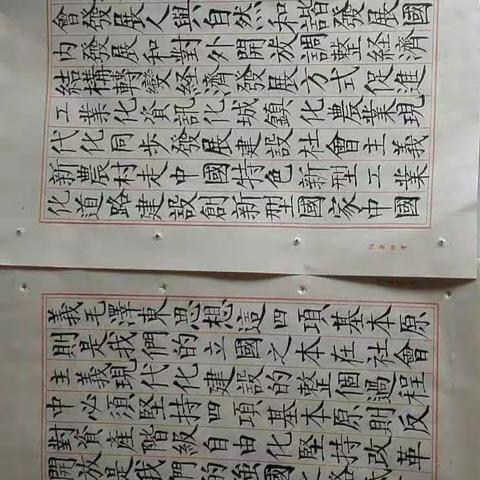 會發展人與自然和諧發展國
內發展和對外開放調整経濟
結構轉變経濟發展方式促進
工業化資訊化城鎮化農業現
代化同步發展建設社會主義
新農村走中國特色新型工業
化道路建設創新型國家中國
義毛澤東思想這四項基本原
則是我們的立國之本在社會
主義現代化建設的整個過程
中必須堅持四項基本原則反
對資產階級自由化堅持改革
開放是我們的強國